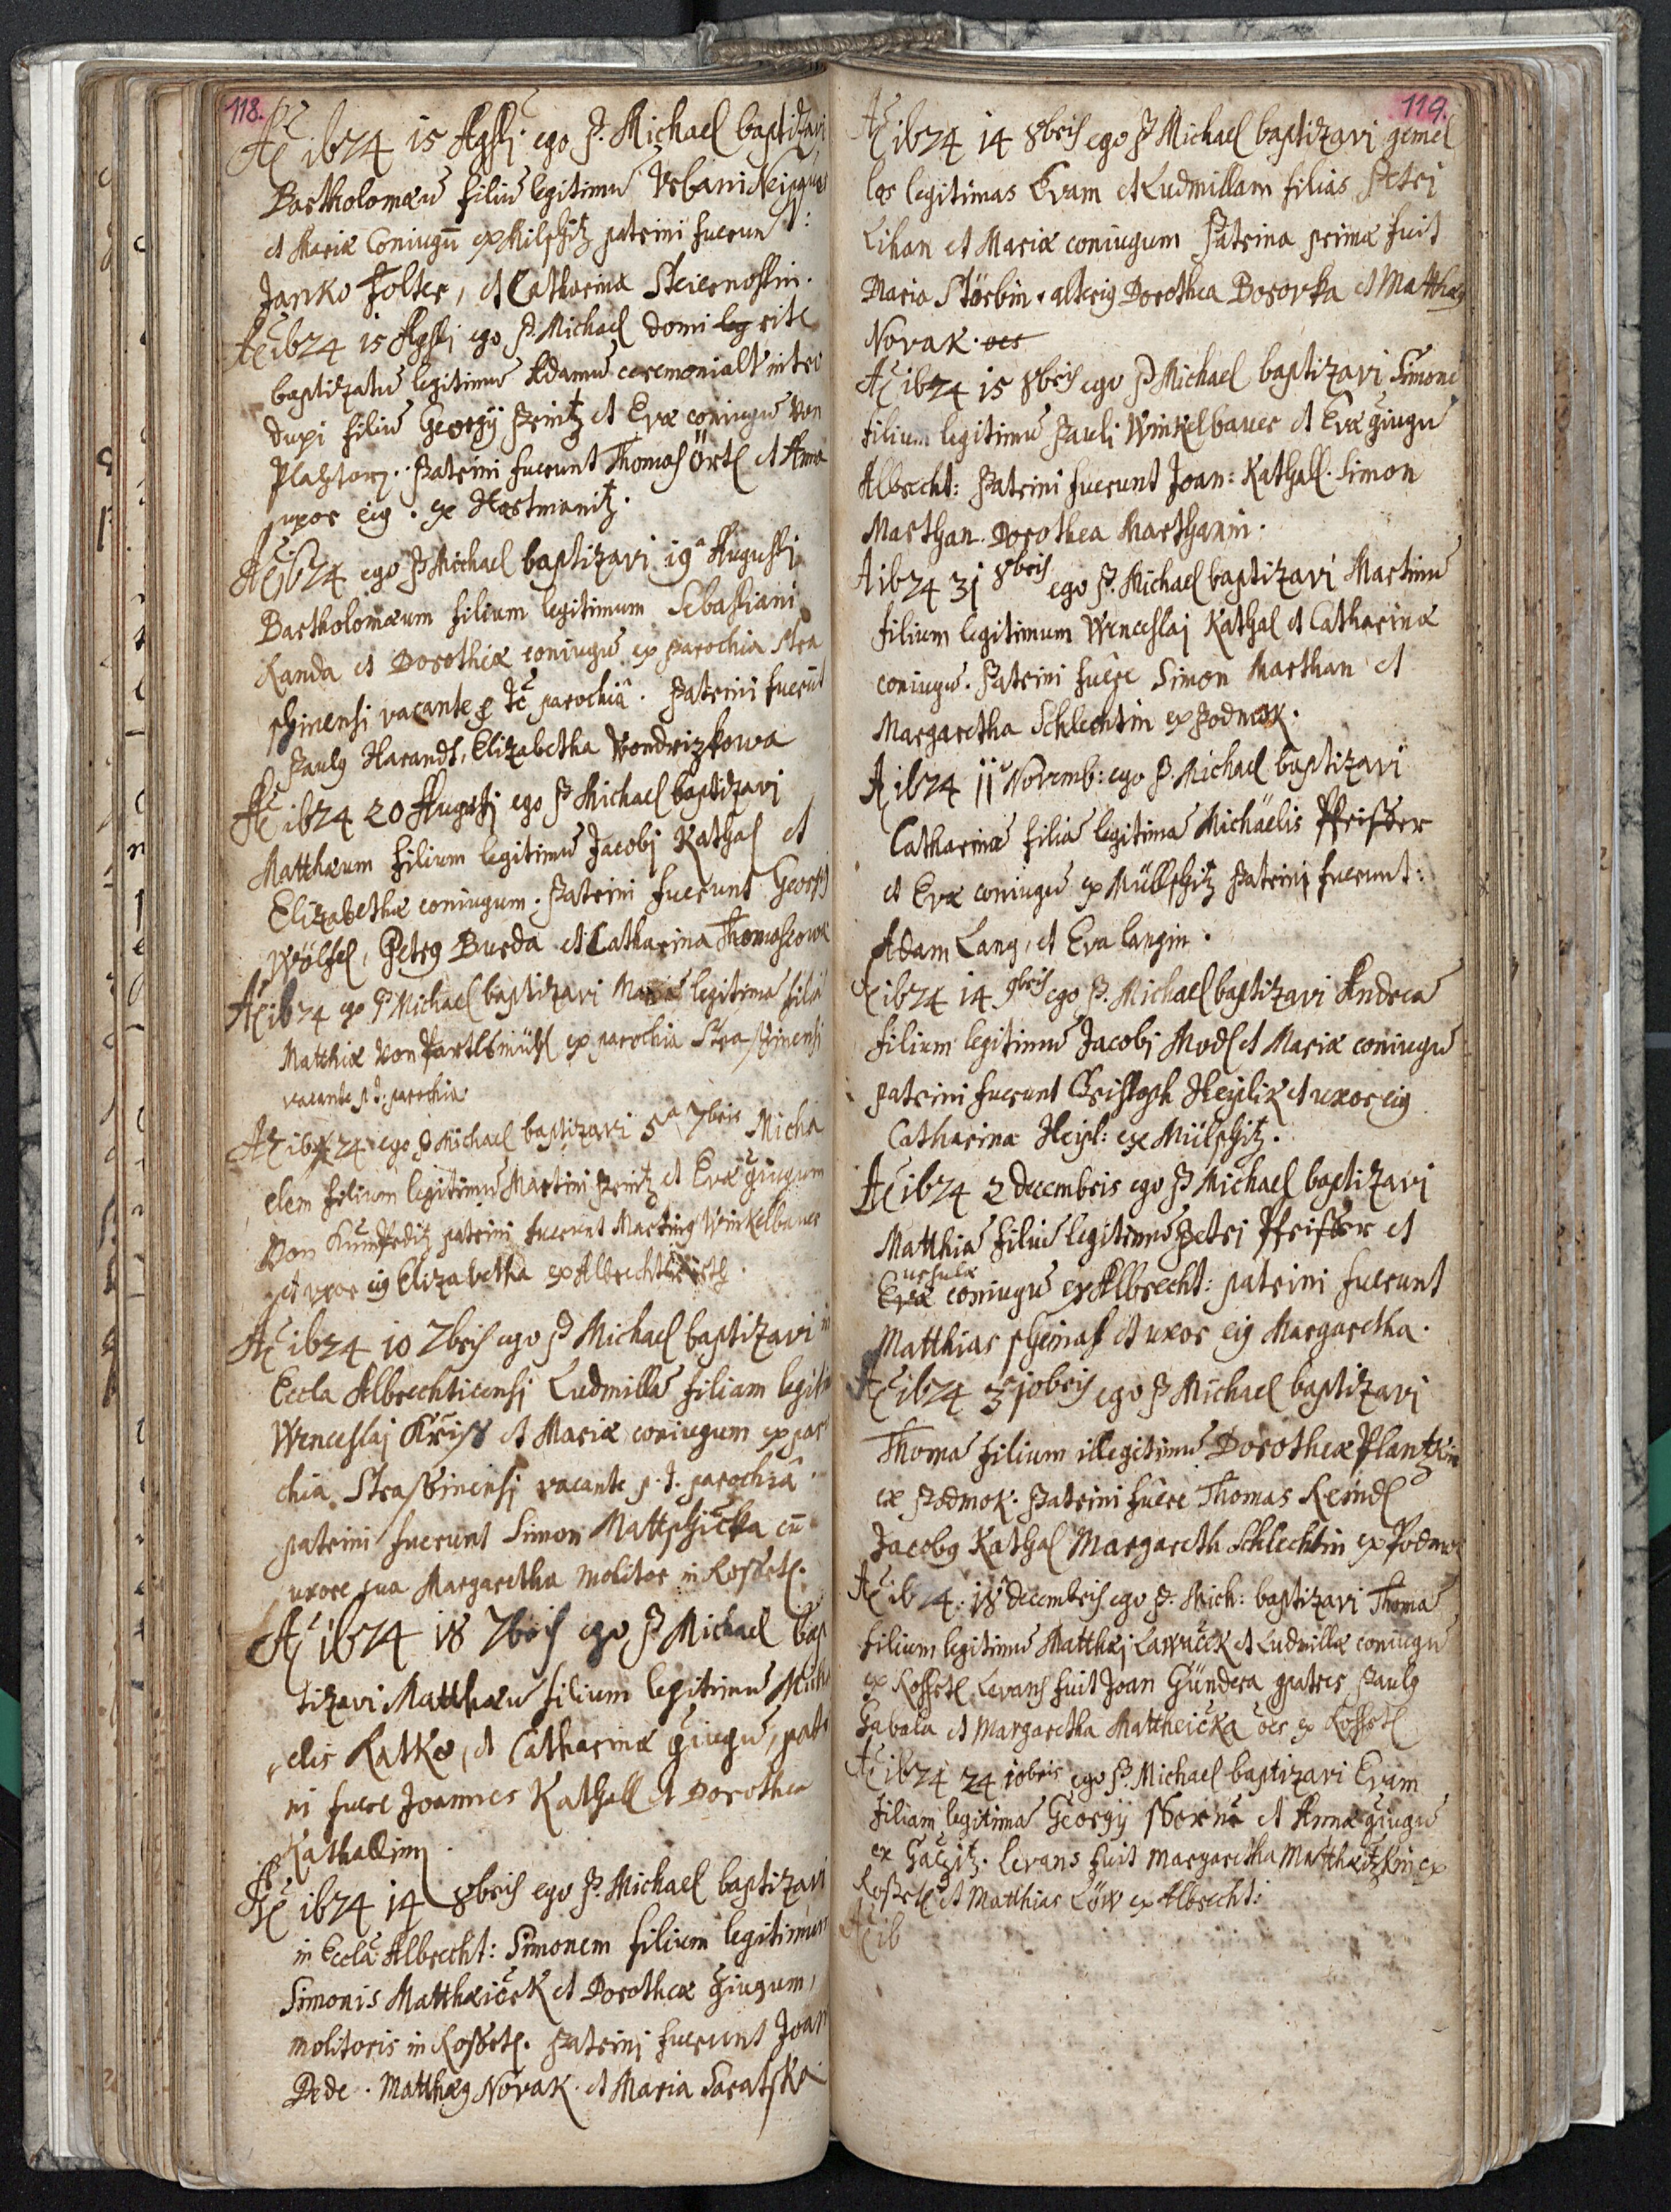 118.
Aͦ 1674 15 Agsti ego P. Michael baptizavi
Bartholomæū filiū legitimū Vrbani
et Mariæ Coniugū ex Milschitz patrini fuerunt:
Janko Folter, et Catharina Steiernostin.
Aͦ 1674 15 Agsti ego P. Michael domi leg rite
baptizatū legitimū Adamū ceremonialr intro
duxi filiū Georgij Printz et Evæ coniugū von
Platztorn. Patrini fuerunt Thomas Örtl et Anna
uxor eig. ex Hartmanitz.
Aͦ 1674 ego P Michael baptizavi 19a Augusti
Bartholomæum filium legitimum Sebastiani
Randa et Dorotheæ coniugū ex parochia Stra
schinensi vacante p Tc parochiâ. Patrini fuerūt
Paulg Harandt, Elizabetha Vondrizkowa
Aͦ 1674 20 Augusti ego P Michael baptizavi
Matthæum filium legitimū Jacobi Kathal et
Elizabethæ coniugum. Patrini fuerunt Georgig
Wölfel, Petrg Burda et Catharina Thomaschowa
Aͦ 1674 ego P Michael baptizavi Mariā legitimā filiā
Matthiæ von Partlsmühl ex parochia Straschinensi
vacante p T: parochia
Aͦ 1674 ego P Michael baptizavi 5a 7bris Micha
elem filium legitimū Martini Printz et Evæ 9iugum
von Kumpeditz patrini fuerunt Marting Winkelbauer
et uxor eig Elizabetha ex Albrechtsriedt.
Aͦ 1674 10 7bris ego P Michael baptizavi in
Eccla Albrechticensi Ludmillā filiam legiti
Wenceslaj Kriss et Mariæ coniugum ex par
chia Strassinensi vacante p. T. parochiâ.
patrini fuerunt Simon Mattschička cū
uxore sua Margaretha molitor in Rossetl.
Aͦ 1674 18 7bris ego P Michael bap
tizavi Matthæū filium legitimū Micha
elis Ratko, et Catharinæ 9iugū, patri
ni fuere Joannes Kathall et Dorothea
Kathallinn.
Aͦ 1674 14 8bris ego P. Michael baptizavi
in Ecclâ Albrecht: Simonem filium legitimum
Simonis Matthæiček et Dorotheæ 9iugum,
molitoris in Rossetl. Patrini fuerunt Joan
Dede. Matthæg Novak. et Maria Saratska
119.
Aͦ 1674 14 8bris ego P Michael baptizavi gemel
las legitimas Evam et Ludmillam filias Petri
Lihan et Mariæ coniugum Patrina primæ fuit
Maria Störbin. alterig Dorothea Borovka et Matthæg
Novak. oes
Aͦ 1674 15 8bris ego P Michael baptizavi Simone
filium legitimū Pauli Winkelbauer et Evæ 9iugū
Albrecht: Patrini fuerunt Joan: Kathall. Simon
Marthan. Dorothea Marthanin.
A 1674 31 8bris ego P. Michael baptizavi Martinū
filium legitimum Wenceslaj Kathal et Catharinæ
coniugū. Patrini fuêre Simon Marthan et
Margaretha Schlechtin ex Podmok.
A 1674 11 Novemb: ego P. Michael baptizavi
Catharinā filiā legitimā Michaëlis Pfeisser
et Evæ coniugū ex Müllschitz Patrini fuerunt:
Adam Lang, et Eva langin.
Aͦ 1674 14 9bris ego P. Michael baptizavi Andreā
filium legitimū Jacobi Modl et Mariæ coniugū
patrini fuerunt Christoph Heyslik et uxor eig
Catharina Heysl: ex Mülschitz.
Aͦ 1674 2 decembris ego P Michael baptizavi
Matthiā filiū legitimū Petri Pfeisser et
ursulæ
Evæ coniugū ex Albrecht: patrini fuerunt
Matthias scheinast et uxor eig Margaretha.
Aͦ 1674 3 10bris ego P Michael baptizavi
Thomā filium illegitimū Dorotheæ Plantzkin
ex Podmok. Patrini fuêre Thomas Reindl
Jacobg Kathal Margareth Schlechtin ex Podmok
Aͦ 1674. 18 decembris ego P. Mich: baptizavi Thomā
filium legitimū Matthæj Lawuček et Ludmillæ coniugū
ex Rossetl Levans fuit Joan Gündera 9patres Paulg
Gabala et Margaretha Mattheička oes ex Rossetl
Aͦ 1674 24 10bris ego P. Michael baptizavi Evam
filiam legitimā Georgij et Annæ 9iugū
ex Gatzitz. levans fuit Margaretha Matthæitzkin ex
Rossetl et Matthias Löw ex Albrecht:
Aͦ 16